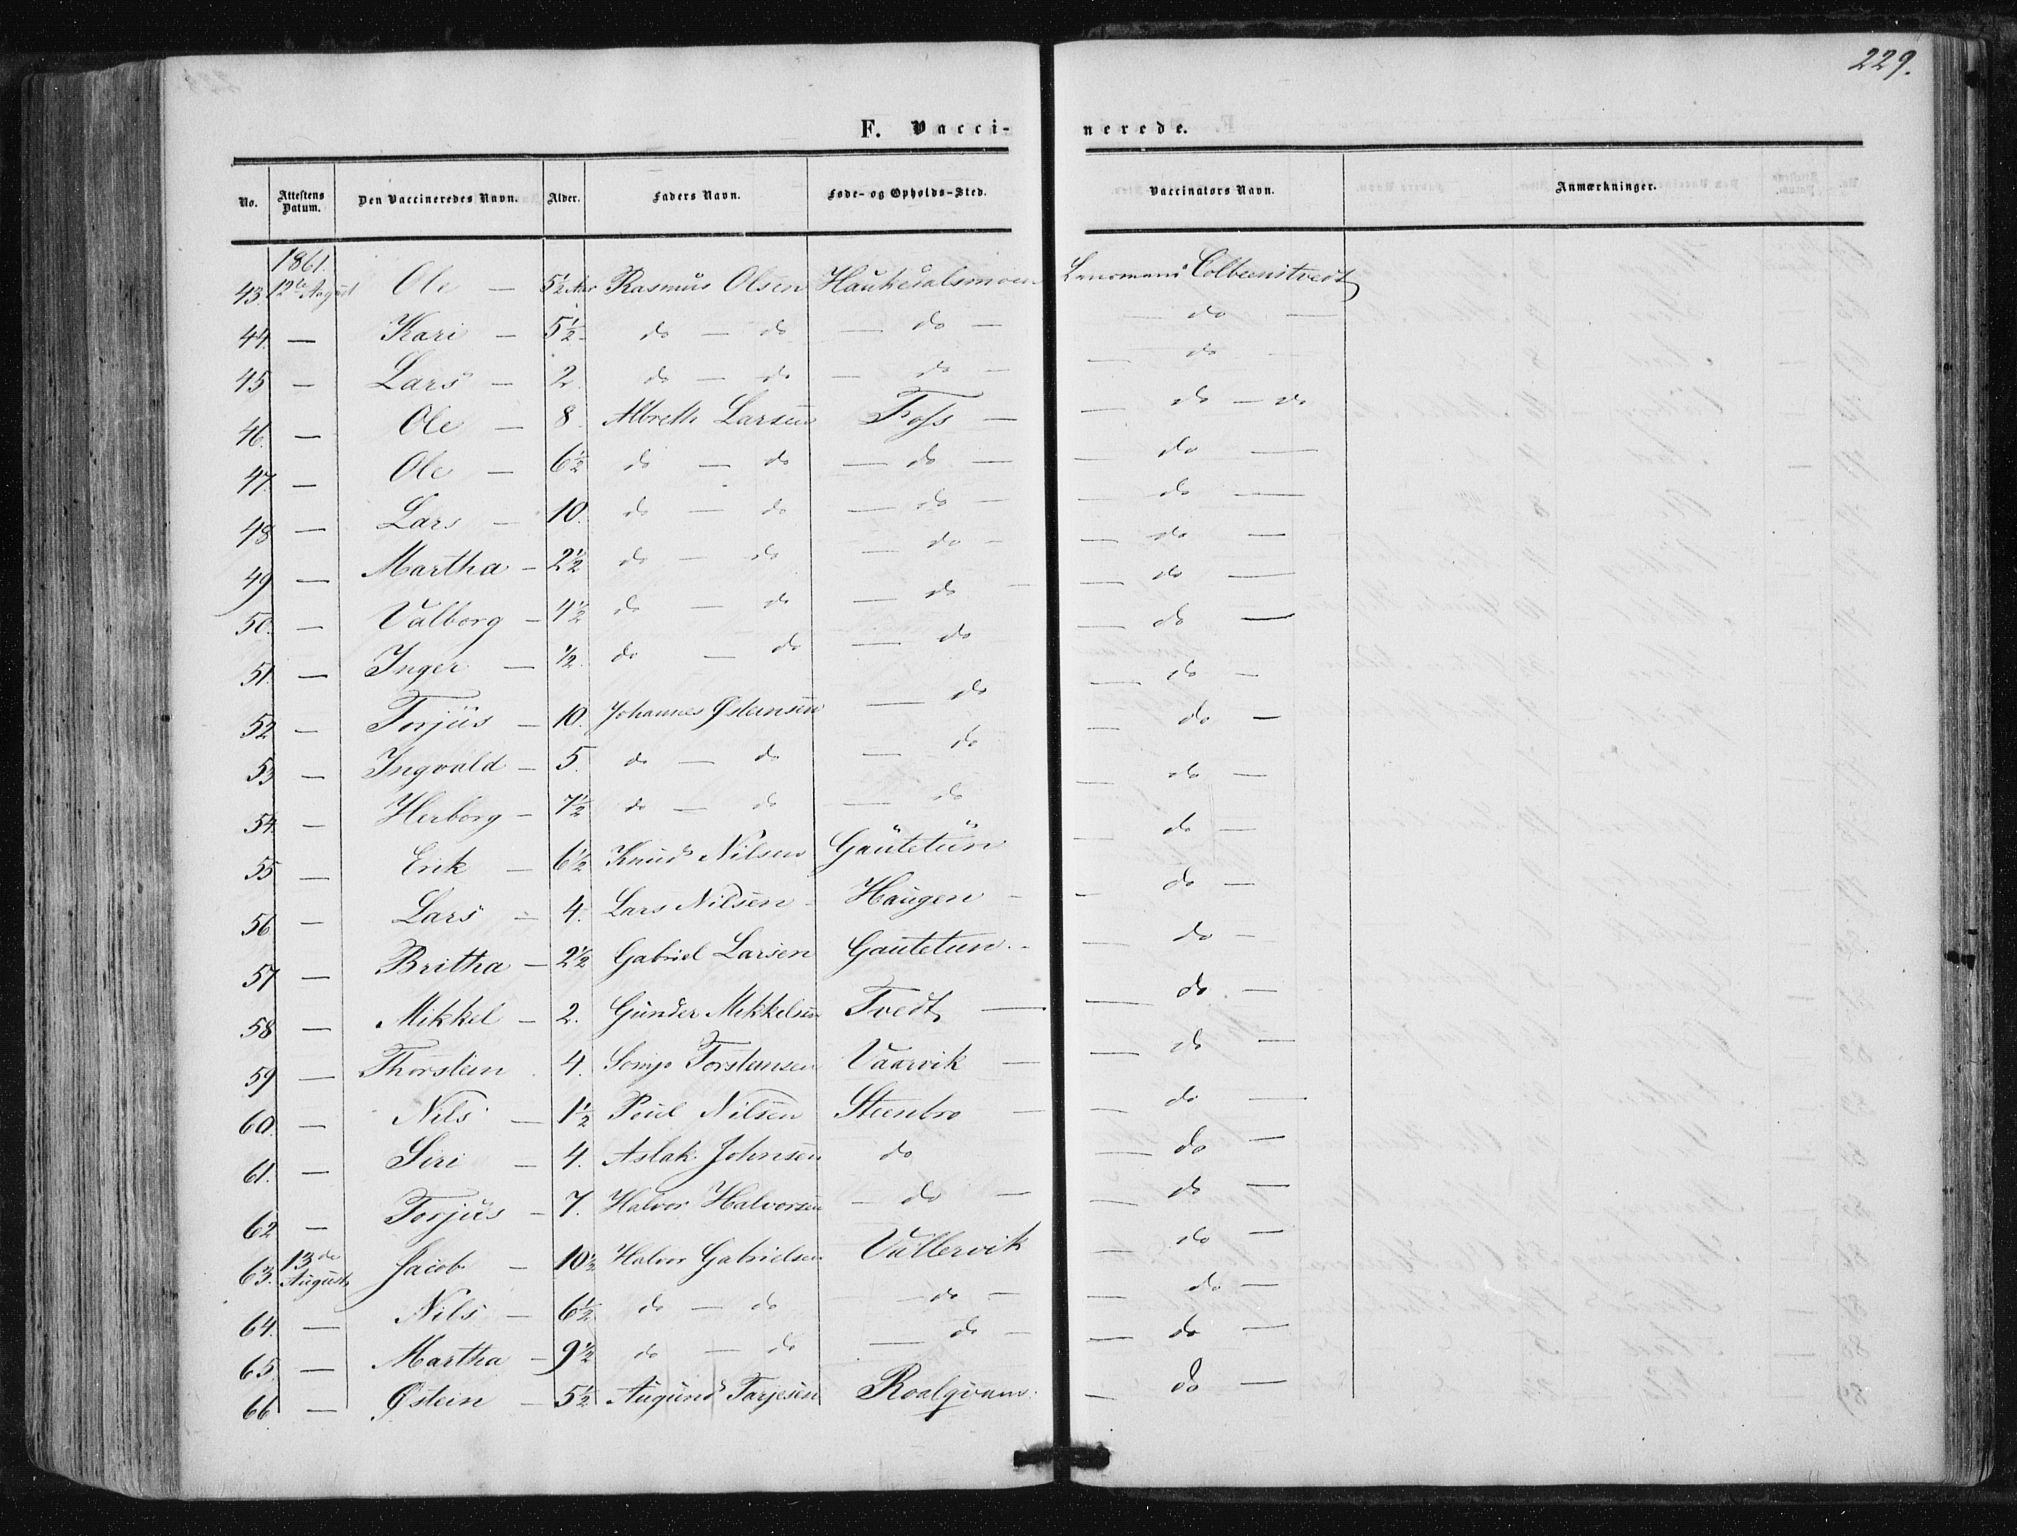 229.
F. Vacci- nerede.
No. Attestens Datum. Den Vaccineredes Navn. Alder. Faders Navn. Føde- og Opholds-Sted. Vaccinators Navn. Anmærkninger.
1861.
43. 12te August Ole — 5½ Aar Rasmus Olsen Haukedalsmoen
44. — Kari — 5½ do — do — do — — do —
45 — Lars — 2. do — do — do — — do —
46. — Ole — 8. Albreth Larsen Foss — — do — do
47. — Ole — 6½ do — do — do — — do —
48 — Lars — 10. do — do — do — — do —
49 — Martha — 2½ do — do — do — — do —
50. — Valborg — 4½ do — do — do — — do —
51. — Inger — ½. do — do — do — do —
52 — Torjüs — 10. Johannes Østensen — do — do —
53 — Ingvald — 5. do — do — do — do —
54. — Herborg — 7½ do — do — do — do —
55 — Erik — 6½ Knud Nilsen Gautetün — do —
56 — Lars — 4. Lars Nilsen Haugen — — do —
57 — Britha — 2½ Gabriel Larsen Gautetun. — — do —
58 — Mikkel — 2. Gunder Mikkelsen Tvedt — — do —
59 — Thorstein 4. Torstensen Vaarvik — — do —
60. — Nils — 1½ Poul Nilsen Steenbro — — do —
61. — Siri — 4. Aslak Johnsen do — do —
62 — Torjüs — 7. Halvor Halvorsen — do — — do —
63. 13de August Jacob — 10½ Halvor Gabrielsen Vallervik — do —
64. — Nils — 6½ do — do — do — — do —
65. — Martha — 9½ do — do — do — — do —
66 — Østein — 5½ Augund Tarjesen Roalqvam. — do —